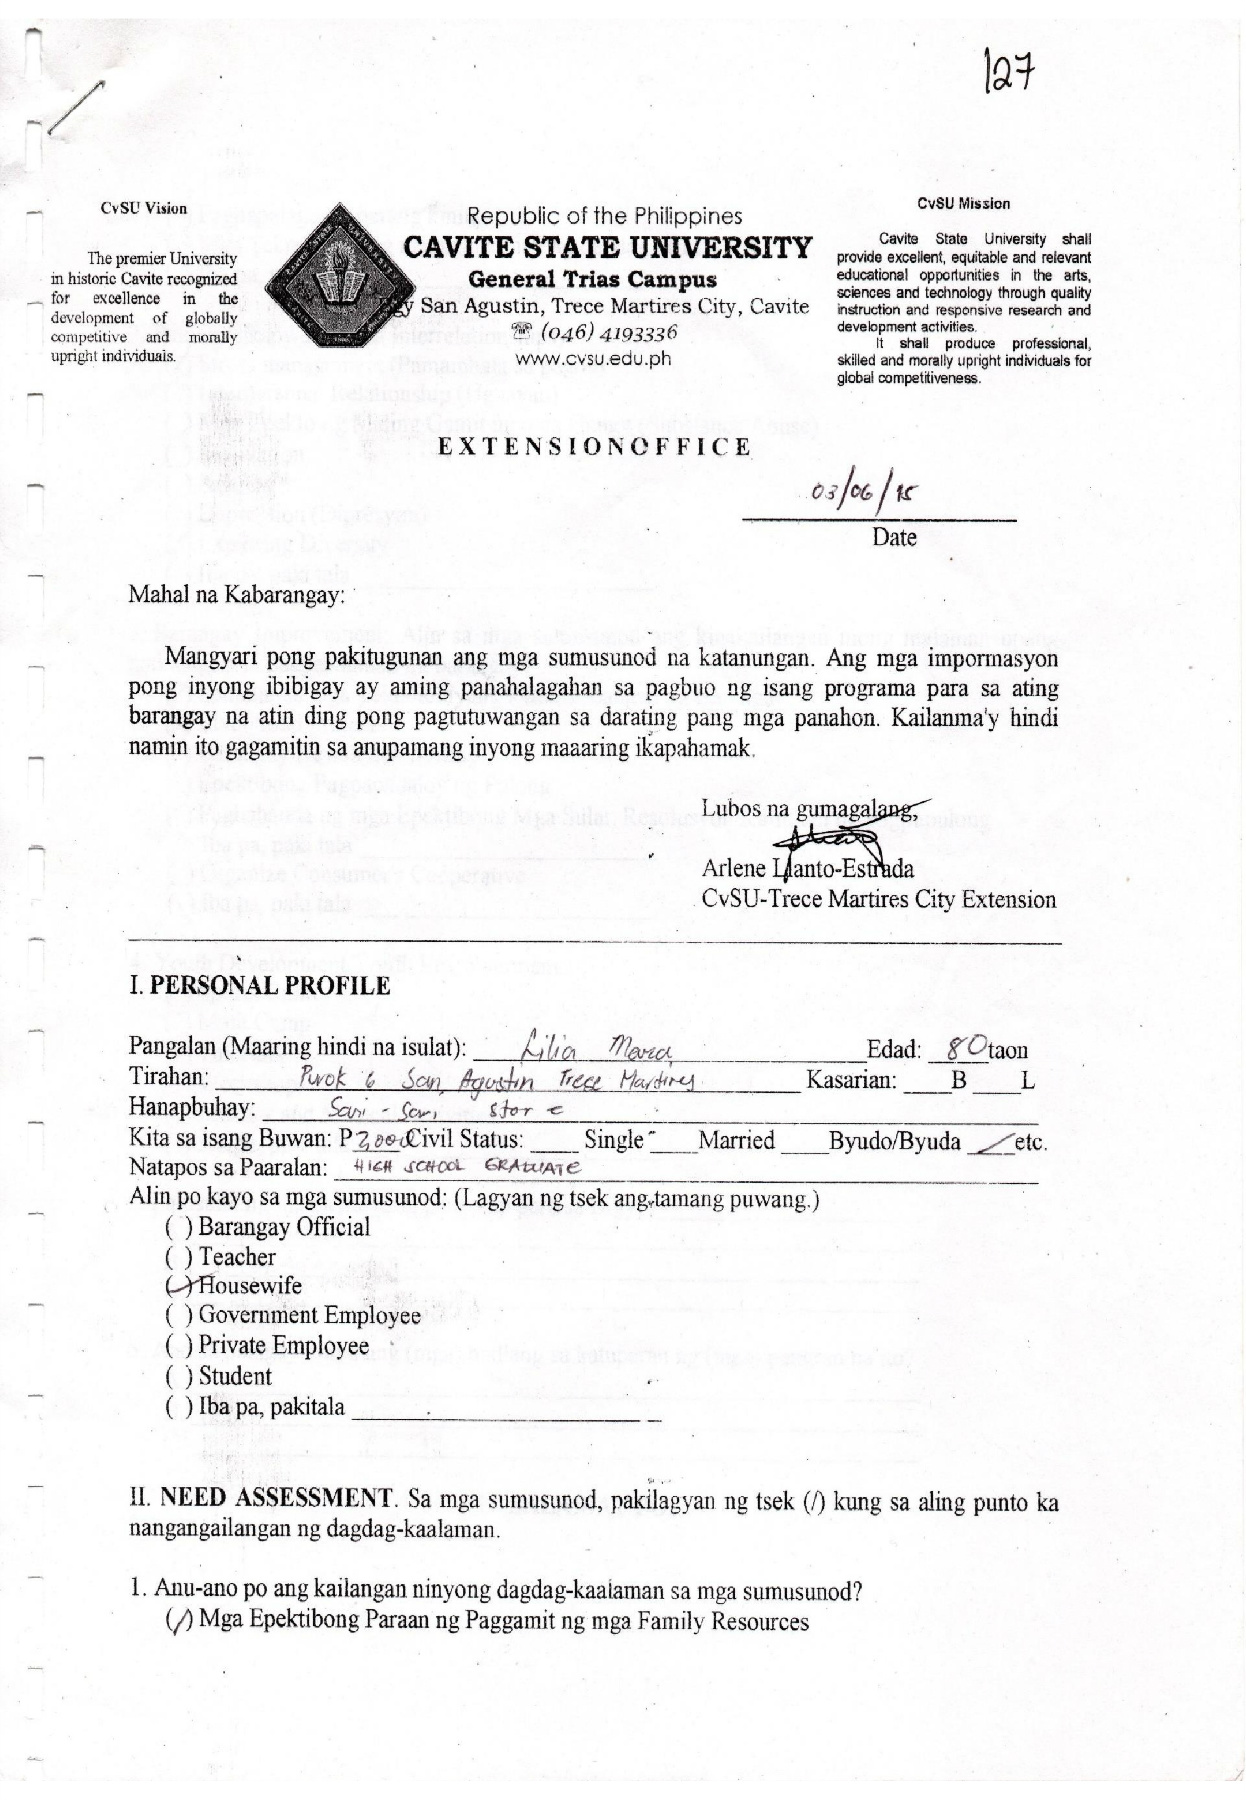 127
CvSU Vision
The premier University
in historic Cavite recognized
for excellence in the
development of globally
competitive and morally
upright individuals.
Republic of the Philippines
CAVITE STATE UNIVERSITY
General Trias Campus
San Agustin, Trece Martires City, Cavite
☏ (046) 4193336
www.cvsu.edu.ph
CvSU Mission
Cavite State University shall
provide excellent, equitable and relevant
educational opportunities in the arts,
sciences and technology through quality
instruction and responsive research and
development activities.
It shall produce professional,
skilled and morally upright individuals for
global competitiveness.
E X T E N S I O N O F F I C E
03/06/15
Date
Mahal na Kabarangay:
Mangyari pong pakitugunan ang mga sumusunod na katanungan. Ang mga impormasyon
pong inyong ibibigay ay aming panahalagahan sa pagbuo ng isang programa para sa ating
barangay na atin ding pong pagtutuwangan sa darating pang mga panahon. Kailanma'y hindi
namin ito gagamitin sa anupamang inyong maaaring ikapahamak.
Lubos na gumagalang,
Arlene Llanto-Estrada
CvSU-Trece Martires City Extension
I. PERSONAL PROFILE
Pangalan (Maaring hindi na isulat): Lilia Edad: 80 taon
Tirahan: Purok 6 San Agustin Trece Martires Kasarian: ____B ____L
Hanapbuhay: Sari - Sari store
Kita sa isang Buwan: P Civil Status: ____ Single ____Married ____Byudo/Byuda _/_etc.
Natapos sa Paaralan: HIGH SCHOOL GRADUATE
Alin po kayo sa mga sumusunod: (Lagyan ng tsek ang tamang puwang.)
( ) Barangay Official
( ) Teacher
(/) Housewife
( ) Government Employee
( ) Private Employee
( ) Student
( ) Iba pa, pakitala ____
II. NEED ASSESSMENT. Sa mga sumusunod, pakilagyan ng tsek (/) kung sa aling punto ka
nangangailangan ng dagdag-kaalaman.
1. Anu-ano po ang kailangan ninyong dagdag-kaalaman sa mga sumusunod?
(/) Mga Epektibong Paraan ng Paggamit ng mga Family Resources